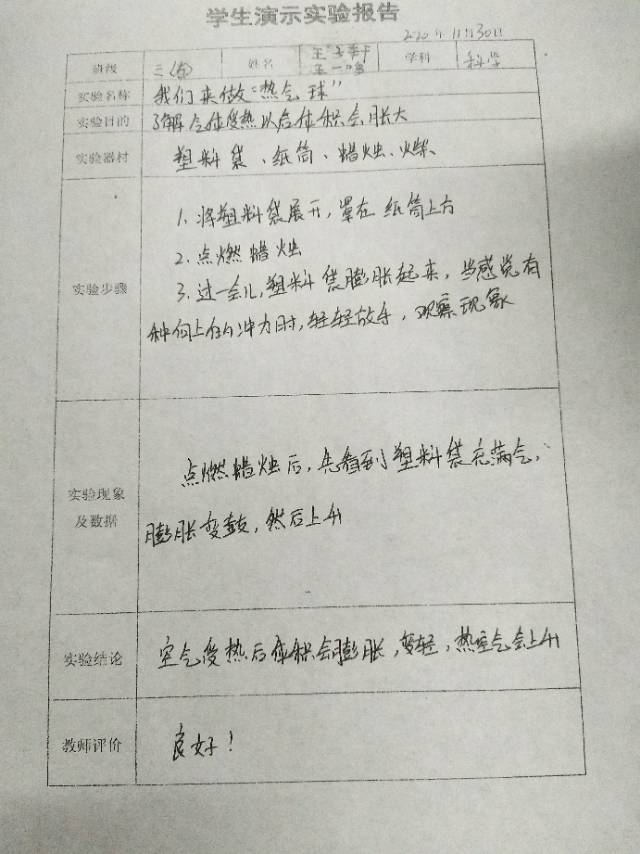 学生演示实验报告
2020年11月30日
班级 三 姓名 王 学科 科学
王一鸣
实验名称 我们来做“热气球”
实验目的 了解气体受热以后体积会胀大
实验器材 塑料袋、纸筒、蜡烛、火柴、
实验步骤
1. 将塑料袋展开，罩在纸筒上方
2. 点燃蜡烛
3. 过一会儿，塑料袋膨胀起来，当感觉有
种向上的冲力时，轻轻放手，观察现象
实验现象
及数据
点燃蜡烛后，先看到塑料袋充满气，
膨胀变鼓，然后上升
实验结论 空气受热后体积会膨胀，变轻，热空气会上升
教师评价 良好！